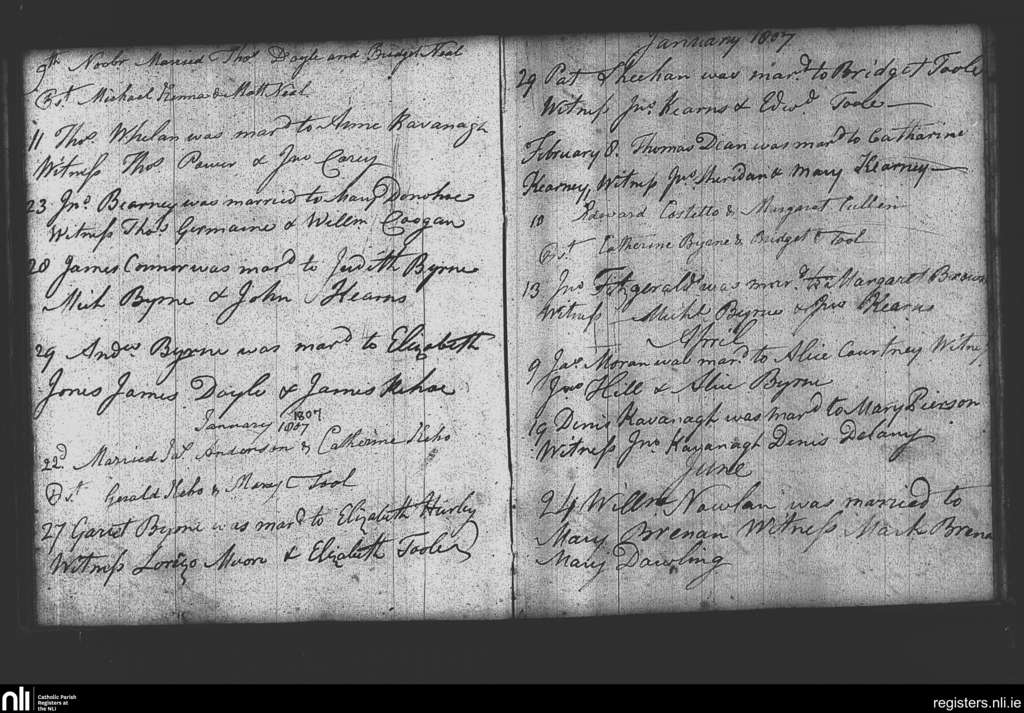 9th Novbr Married Thos Doyle and Bridget Neal
Pst. Michael Kenna & Matt Neal
11 Thos. Whelan was mard to Anne Kavanagh
Witness Thos Power & Jno Carey
23 Jno. Bearney was married to Mary Donohoe
Witness Thos Germaine & Willm Coogan
28 James Connor was mard to Judith Byrne
Mich Byrne & John Kearns
29 Andw Byrne was mard to Elizabeth
Jones James Doyle & James Kehoe
1807
January 1807
22d Married Jas. Anderson & Catherine Keho
Pst. Gerald Keho & Mary Tool
27 Garret Byrne was mard to Elizabeth Hurley
Witness Lorenzo Moore & Elizabeth Toole
January 1807
29 Pat Sheehan was mard to Bridget Toole
Witness Jno. Kearns & Edwd Toole
February 8. Thomas Dean was mard to Catharine
Kearney, Witness Jno Sheridan & Mary Kearney
10 Edward Costello & Margaret Cullen
Pst. Catherine Byrne & Bridget Tool
13 Jno Fitzgerald was mard to Margaret Brown
Witness Michl Byrne & Jno Kearns
April
9 Jas. Moran was mard to Alice Courtney Witness
Jno Hill & Alice Byrne
19 Denis Kavanagh was mard to Mary Pierson
Witness Jno Kavanagh Denis Delany
June
24 Willm Nowlan was married to
Mary Brenan Witness Mark Brena
Mary Dowling
nli
Catholic Parish
Registers at
the NLI
registers.nli.ie